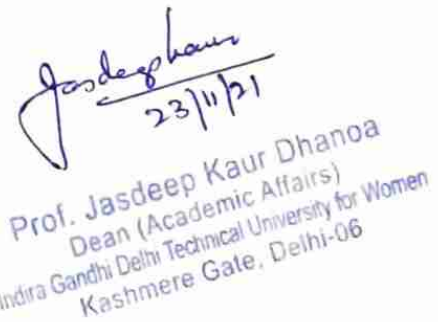 Jasdeep Kaur
23/11/21
Prof. Jasdeep Kaur Dhanoa
Dean (Academic Affairs)
Indira Gandhi Delhi Technical University for Women
Kashmere Gate, Delhi-06